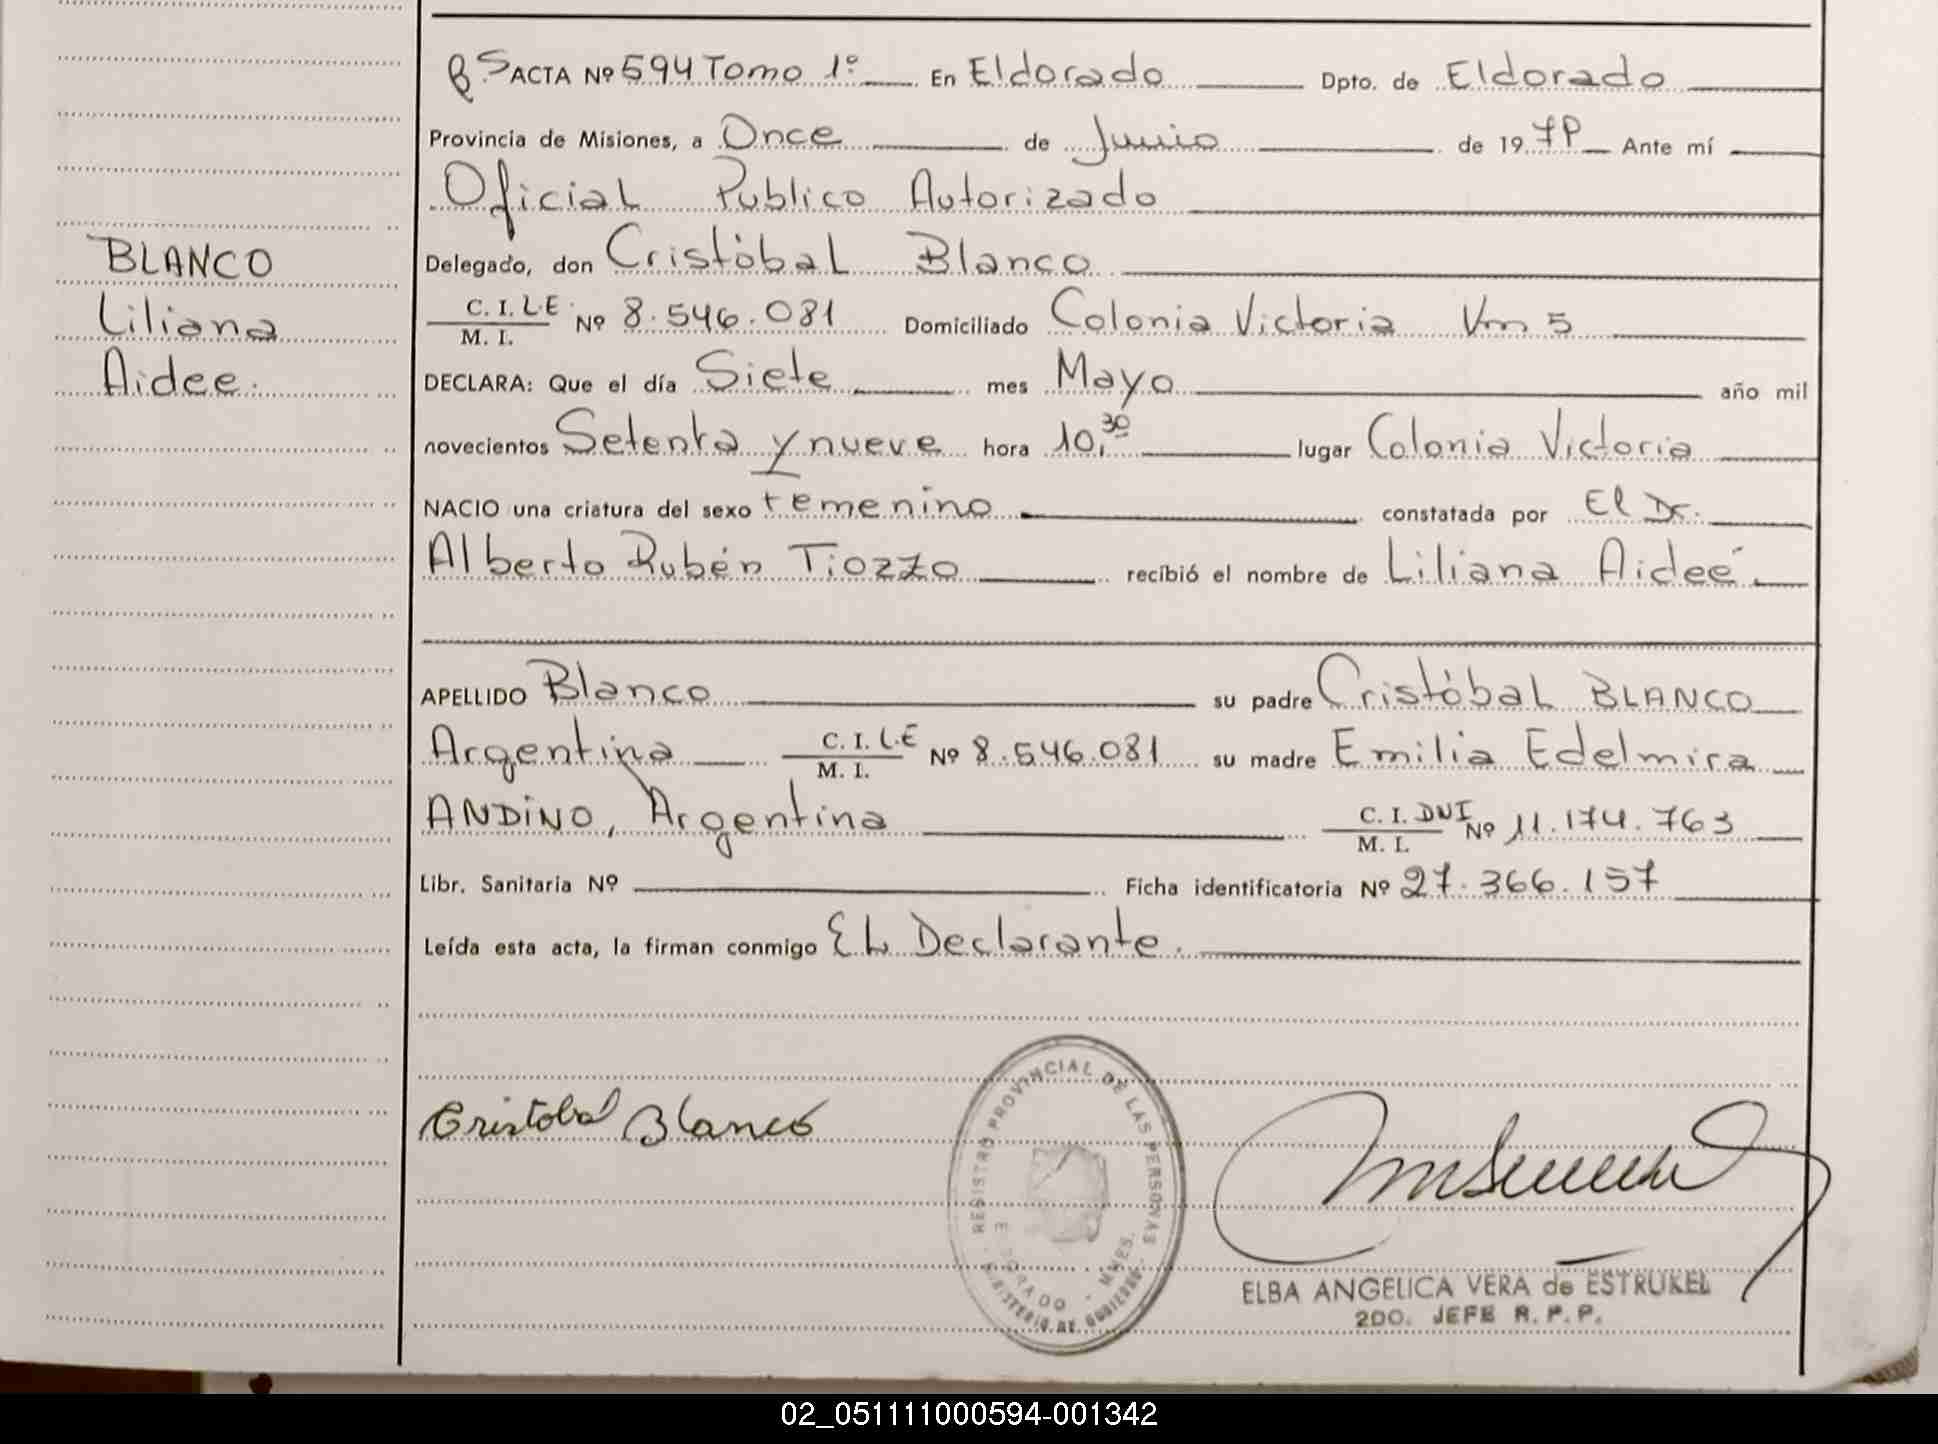 BLANCO
Liliana
Aidee.
ACTA Nº 594 Tomo 1º En Eldorado Dpto. de Eldorado
Provincia de Misiones, a Once de Junio de 1979 Ante mí
Oficial Publico Autorizado
Delegado, don Cristóbal Blanco
C. I. L.E Nº 8.546.081 Domiciliado Colonia Victoria Km 5
M. I.
DECLARA: Que el día Siete mes Mayo año mil
novecientos Setenta y nueve hora 10,30 lugar Colonia Victoria
NACIO una criatura del sexo femenino constatada por El Dr.
Alberto Rubén Tiozzo recibió el nombre de Liliana Aideé
APELLIDO Blanco su padre Cristóbal BLANCO
Argentina C. I. L.E Nº 8.546.081 su madre Emilia Edelmira
M. I.
ANDINO, Argentina C. I. DNI Nº 11.174.763
M. I.
Libr. Sanitaria Nº Ficha identificatoria Nº 27.366.157
Leída esta acta, la firman conmigo EL Declarante.
Cristobal Blanco
REGISTRO PROVINCIAL DE LAS PERSONAS
ELDORADO - MNES.
MINISTERIO DE GOBIERNO
ELBA ANGELICA VERA de ESTRUKEL
2DO. JEFE R. P. P.
02_051111000594-001342